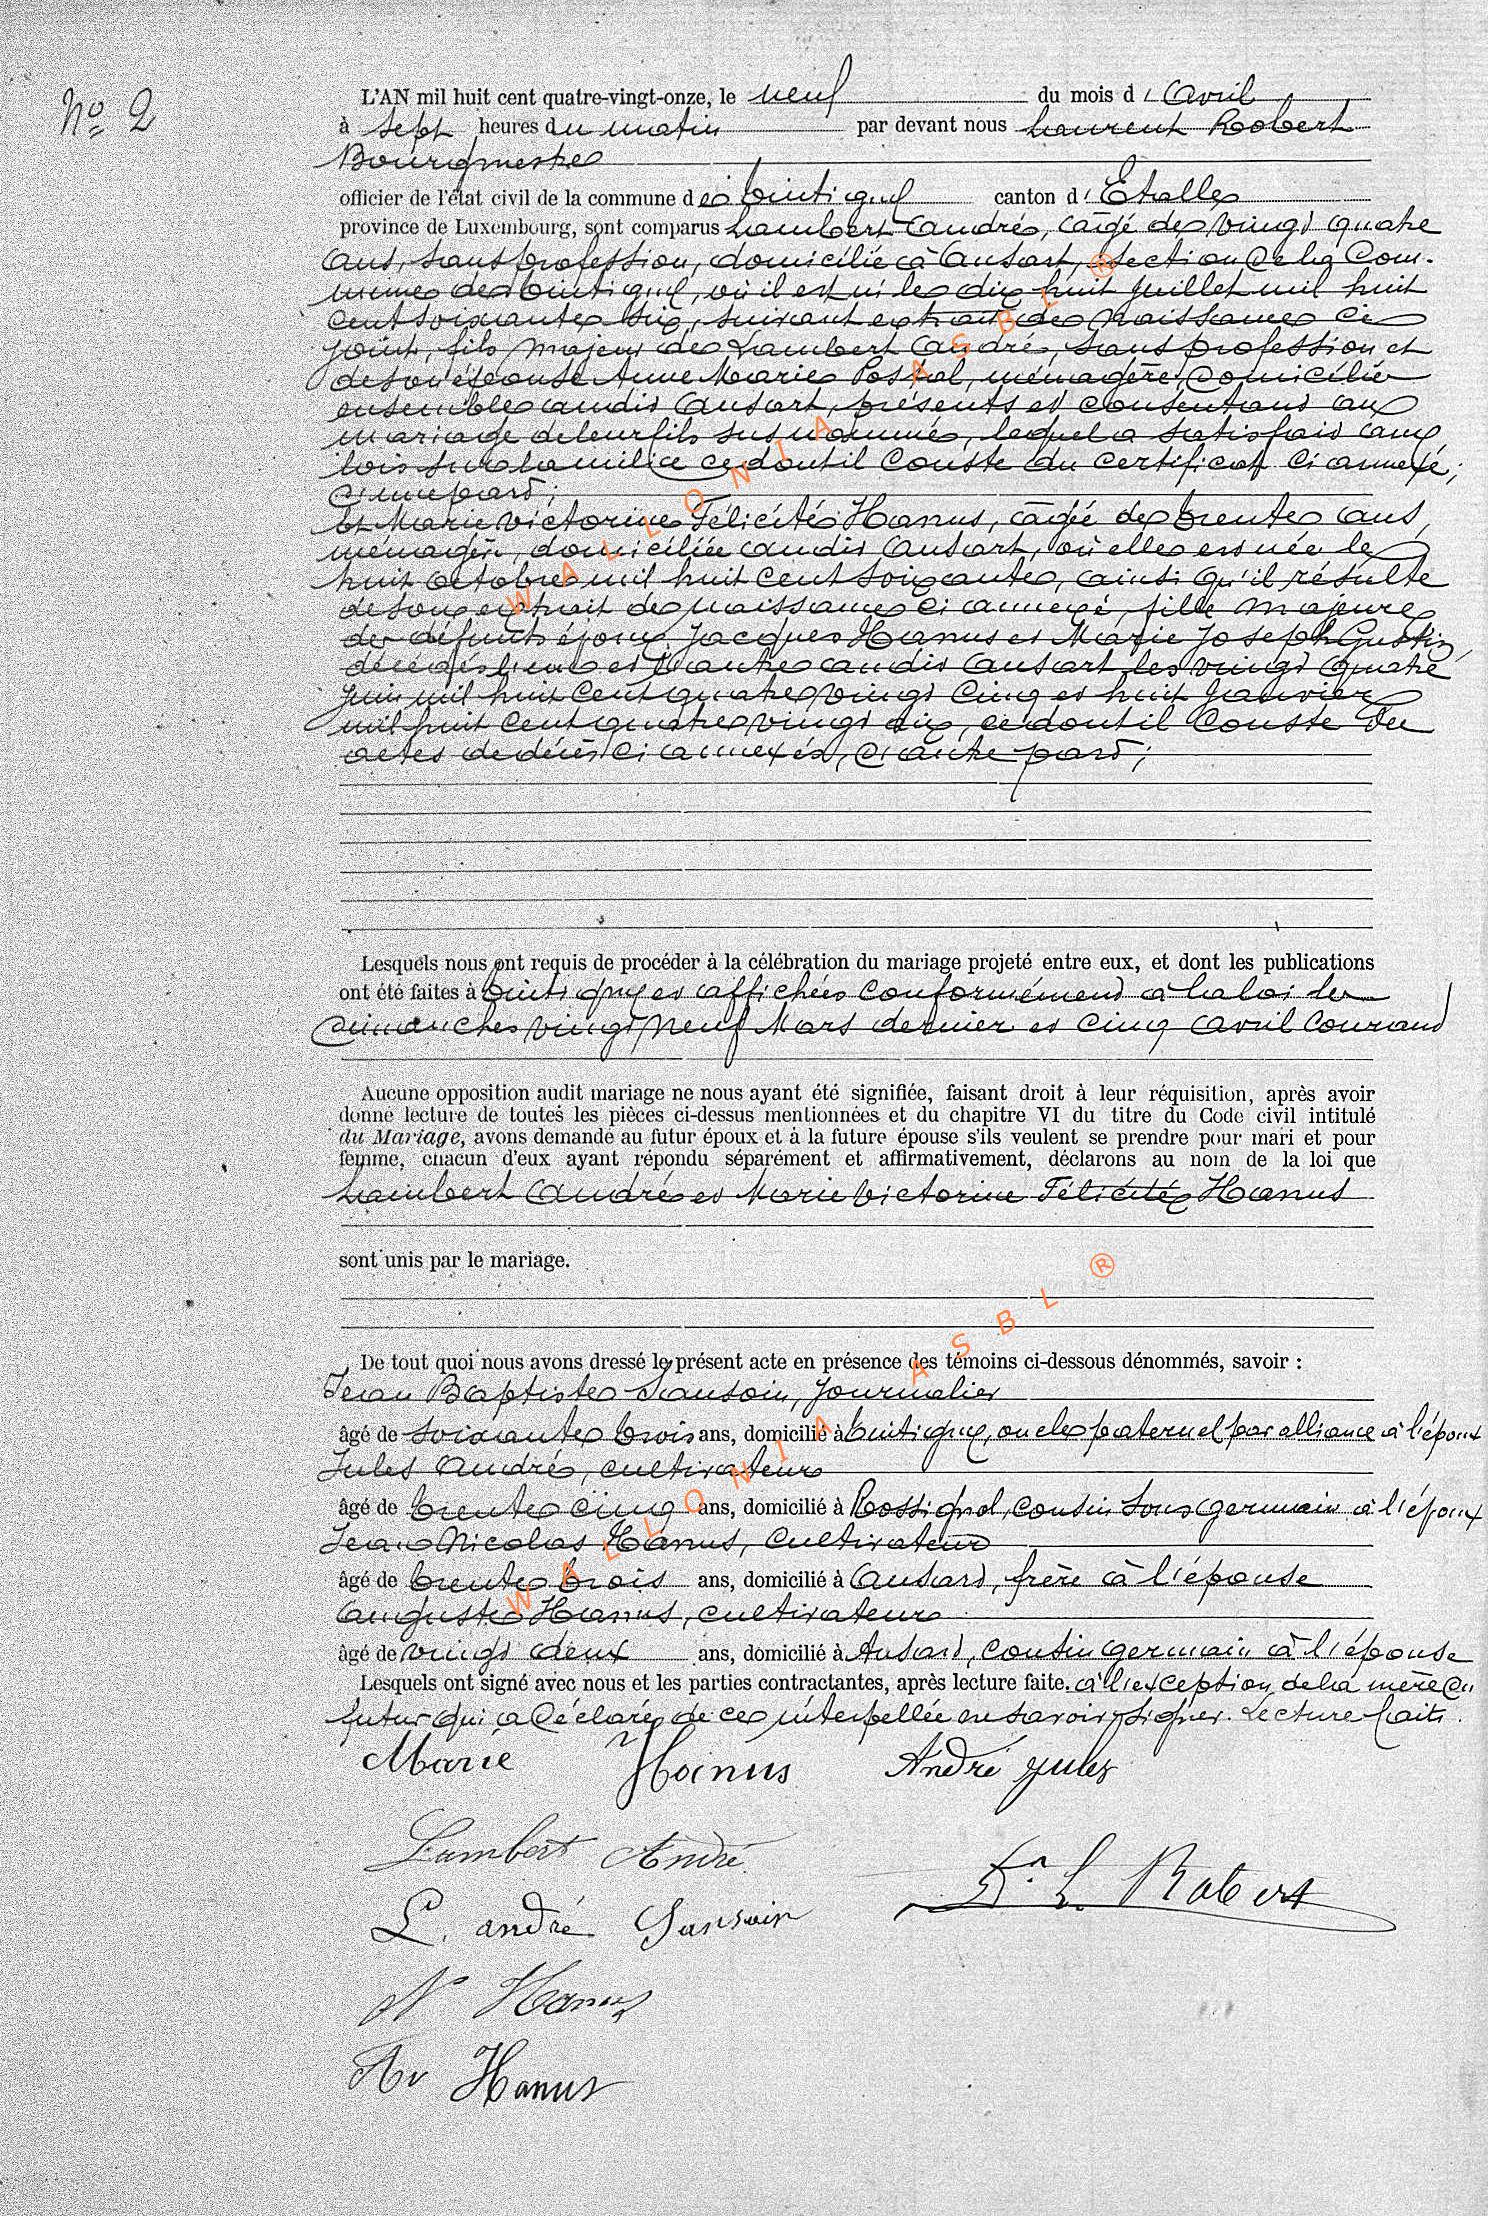 No 2
L'AN mil huit cent quatre-vingt-onze, le neuf du mois d'Avril
à sept heures du matin par devant nous Laurent Robert
Bourgmestre
officier de l'état civil de la commune de Tintigny canton d'Etalle
province de Luxembourg, sont comparus Lambert André, âgé de vingt quatre
ans, sans profession, domicilié à Ansart, section de la Com-
mune de Tintigny, où il est né le dix huit juillet mil huit
cent soixante six, suivant extrait de naissance ci
joint, fils majeur de Lambert André, sans profession et
de son épouse Anne Marie Postal, ménagère, domiciliés
ensemble audit Ansart, présents et consentant au
mariage de leur fils sus nommé, lequel a satisfait aux
lois sur la milice ce dont il conste du certificat ci annexé;
d'une part;
Et Marie Victorine Félicité Hanus, âgée de trente ans,
ménagère, domiciliée audit Ansart, où elle est née le
huit octobre mil huit cent soixante, ainsi qu'il résulte
de son extrait de naissance ci annexé, fille majeure
de défunts époux Jacques Hanus et Marie Joseph Gustin,
décédés l'un et l'autre audit Ansart les vingt quatre
juin mil huit cent quatre vingt cinq et huit Janvier
mil huit cent quatre vingt dix, ce dont il conste des
actes de décès ci annexés, d'autre part;
Lesquels nous ont requis de procéder à la célébration du mariage projeté entre eux, et dont les publications
ont été faites à Tintigny et affichées conformément à la loi les
dimanches vingt neuf Mars dernier et cinq avril courant
Aucune opposition audit mariage ne nous ayant été signifiée, faisant droit à leur réquisition, après avoir
donné lecture de toutes les pièces ci-dessus mentionnées et du chapitre VI du titre du Code civil intitulé
du Mariage, avons demandé au futur époux et à la future épouse s'ils veulent se prendre pour mari et pour
femme, chacun d'eux ayant répondu séparément et affirmativement, déclarons au nom de la loi que
Lambert André et Marie Victorine Félicité Hanus
sont unis par le mariage.
De tout quoi nous avons dressé le présent acte en présence des témoins ci-dessous dénommés, savoir :
Jean Baptiste Sansoin, journalier
âgé de soixante trois ans, domicilié à Tintigny, oncle paternel par alliance à l'époux
Jules André, cultivateur
âgé de trente cinq ans, domicilié à Rossignol, cousin sous germain à l'époux
Jean Nicolas Hanus, cultivateur
âgé de trente trois ans, domicilié à Ansart, frère à l'épouse
Auguste Hanus, cultivateur
âgé de vingt deux ans, domicilié à Ansart, cousin germain à l'épouse
Lesquels ont signé avec nous et les parties contractantes, après lecture faite. à l'exception de la mère du
futur qui a déclaré de ce interpellée ne savoir signer. Lecture faite.
Marie Hanus André Jules
Lambert André
L. Robert
L. andré Sansoin
N Hanus
Au Hanus
WALLONIA ASBL ®
WALLONIA ASBL ®